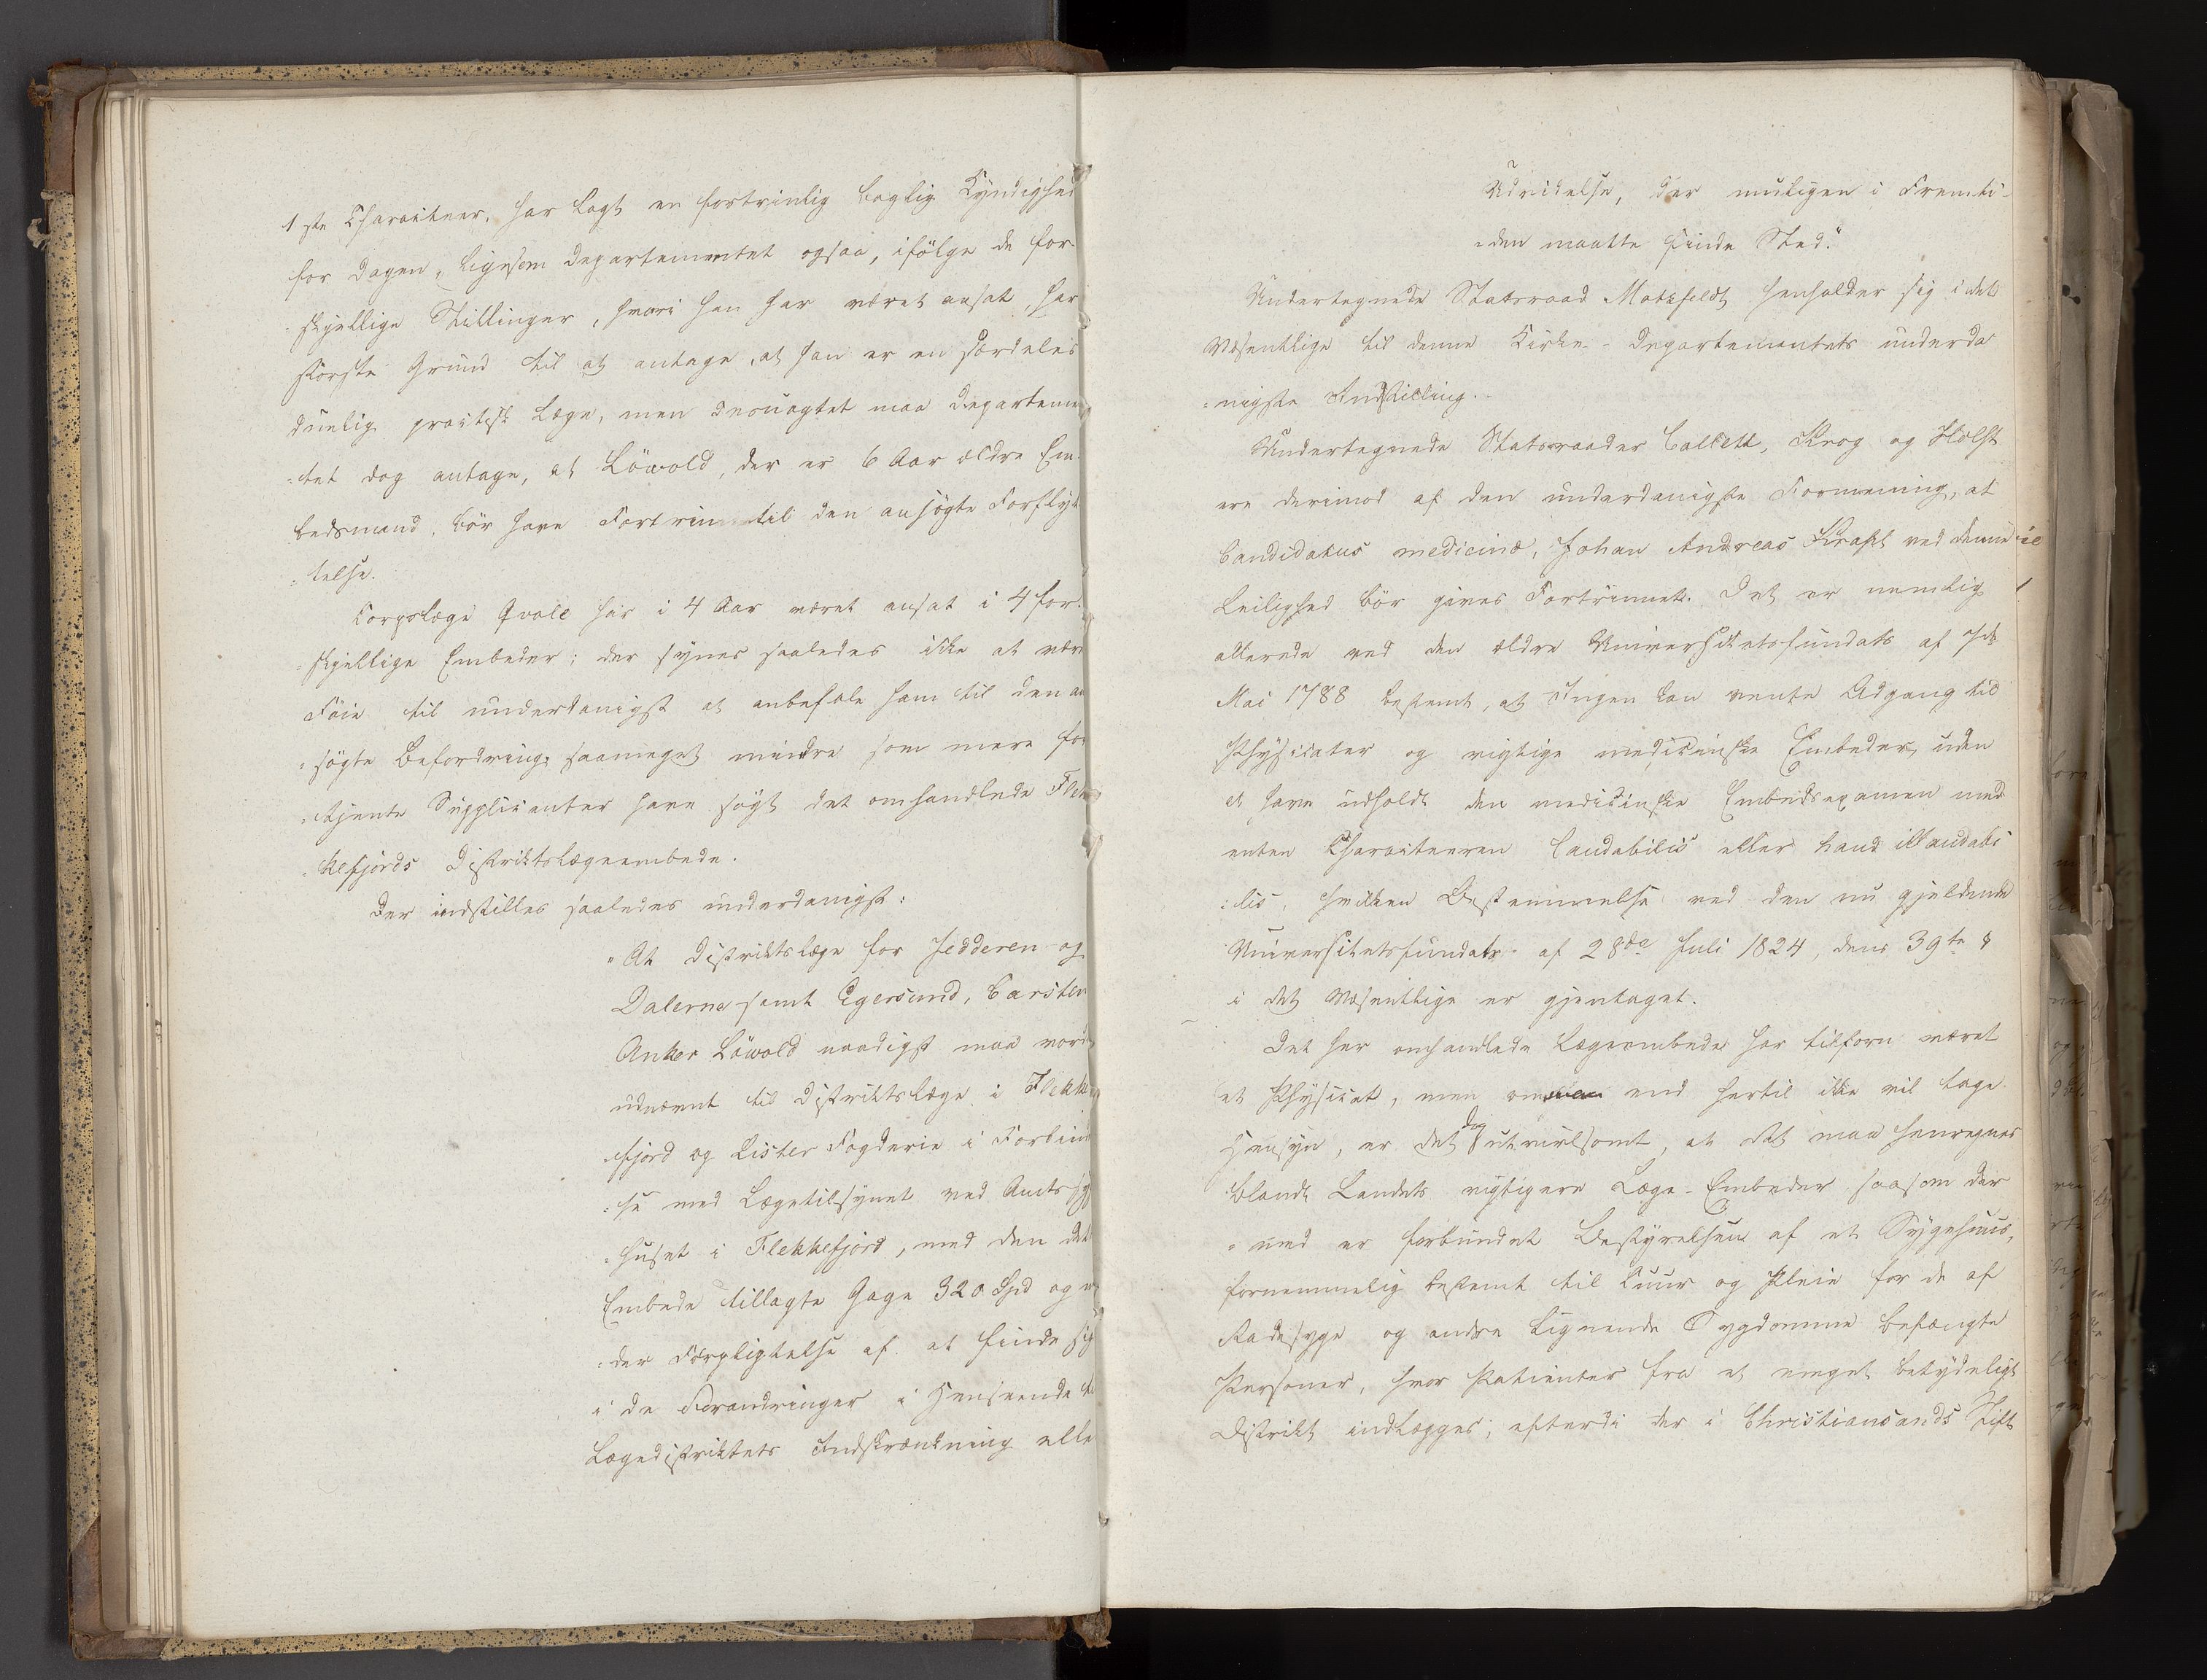 1ste Charakteer, har lagt en fortrinlig boglig Kyndighed
for Dagen, ligesom Departementet ogsaa, ifölge de for-
skjellige Stillinger, hvori han har været ansat, har
störste Grund til at antage, at han er en særdeles
duelig practisk Læge, men desuagtet maa Departemen
tet dog antage, at Löwold, der er 6 Aar ældre Em-
bedsmand, bör have Fortrin til den ansögte Forflyt-
telse.
Corpslæge Qvale har i 4 Aar været ansat i 4 for-
skjellige Embeder; der synes saaledes ikke at være
Föie til underdanigst at anbefale ham til den an
sögte Befordring, saameget mindre som mere for
tjente Supplicanter have sögt det omhandlede Flek
kefjords Distriktslægeembede.
Der indstilles saaledes underdanigst:
"At Distriktslæge for Jedderen og
Dalerne samt Egersund, Carsten
Anker Löwold naadigst maa vorde
udnævnt til Distriktslæge i Flekke
fjord og Lister Fogderie i Forbindel
se med Lægetilsynet ved Amtssyge
huset i Flekkefjord, med den det
Embede tillagte Gage 320 Spd og un
der Forpligtelse af at finde sig
i de Forandringer i Henseende til
Lægedistriktets Indskrænkning elle
Udvidelse, der muligen i Fremti-
den maatte finde Sted."
Undertegnede Statsraad Motzfeldt henholder sig i det
Væsentlige til denne Kirke-Departementets underda
nigste Indstilling.
Undertegnede Statsraader Collett, Krog og Holst
ere derimod af den underdanigste Formening, at
Candidatus medicinæ, Johan Andreas Kraft ved denne
Leilighed bör gives Fortrinnet. Det er nemlig
allerede ved den ældre Universitetsfundats af 7de
Mai 1788 bestemt, at Ingen kan vente Adgang til
Physicater og vigtige medicinske Embeder, uden
at have udholdt den medicinske Embedsexamen med
enten Charakteeren laudabilis eller haud illaudabi
lis, hvilken Bestemmelse ved den nu gjeldende
Universitetsfundats af 28de Juli 1824, dens 39te §
i det Væsentlige er gjentaget.
Det her omhandlede Lægeembede har tilforn været
et Physicat, men om man end hertil ikke vil tage
Hensyn, er det dog utvivlsomt, at det maa henregnes
blandt Landets vigtigere Læge-Embeder saasom der
med er forbundet Bestyrelsen af et Sygehuus,
fornemmelig bestemt til Cuur og Pleie for de af
Radesyge og andre lignende Sygdomme befængte
Personer, hvor Patienter fra et meget betydeligt
Distrikt indlægges; efterdi der i Christiansands Stift